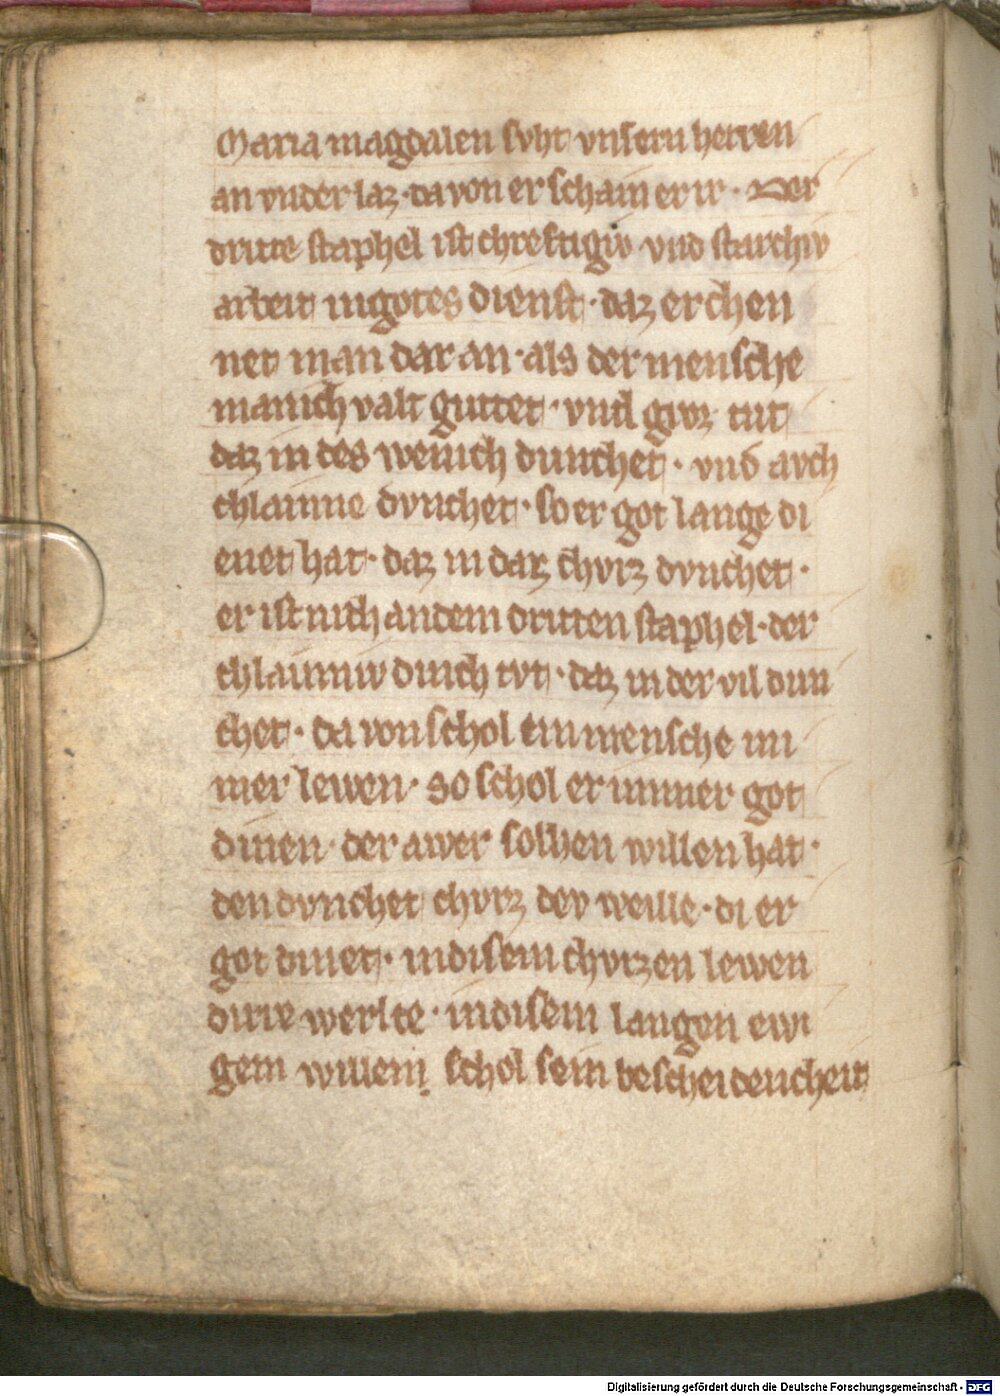 Maria magdalen svht vnsern herren
an vnder laz · da von er schain er ir · Der
dritte staphel ist chreftigiv vnd starchiv
arbeit in gotes dienst · daz er chen
net man dar an · als der mensche
manich valt guttet · vnd giwz tut
daz in des wenich dunchet · vnd avch
chlainne dvnchet · so er got lange di
enet hat · daz in daz chvrz dvnchet ·
er ist nith an dem dritten staphel · der
chlainniv dinch tvt · daz in der vil dun
chet · da von schol ein mensche im
mer lewen · so schol er immer got
dinen · der awer solhen willen hat ·
den dvnchet chvrz dev weille · di er
got dinet · in disem chvrzen lewen
dirre werlte · in disem langen ewi
gem willem schol sein bescheidencheit
Digitalisierung gefördert durch die Deutsche Forschungsgemeinschaft - DFG